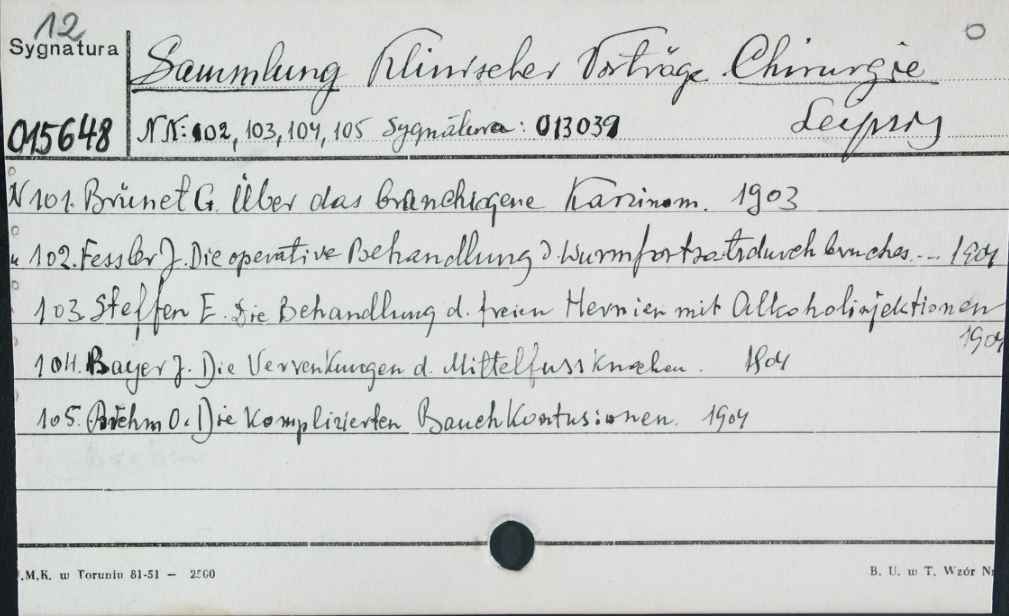 12
Sygnatura
Sammlung Klinischer Vorträge. Chirurgie
015648
NN: 102, 103, 104, 105 Sygnatura: 013039 Leipzig
N 101. Brünet G. Über das branchigene Karzinom. 1903
" 102. Fessler J. Die operative Behandlung d. Wurmfortsatzdurchbruches... 1904
103. Steffen E. Die Behandlung d. freien Hernien mit Alkoholinjektionen
1904
104. Bayer J. Die Verrenkungen d. Mittelfussknochen. 1904
105. Böhm O. Die Komplizierten Bauchkontusionen. 1904
.M.K. w Toruniu 81-51 — 2500
B. U. w T. Wzór Nr